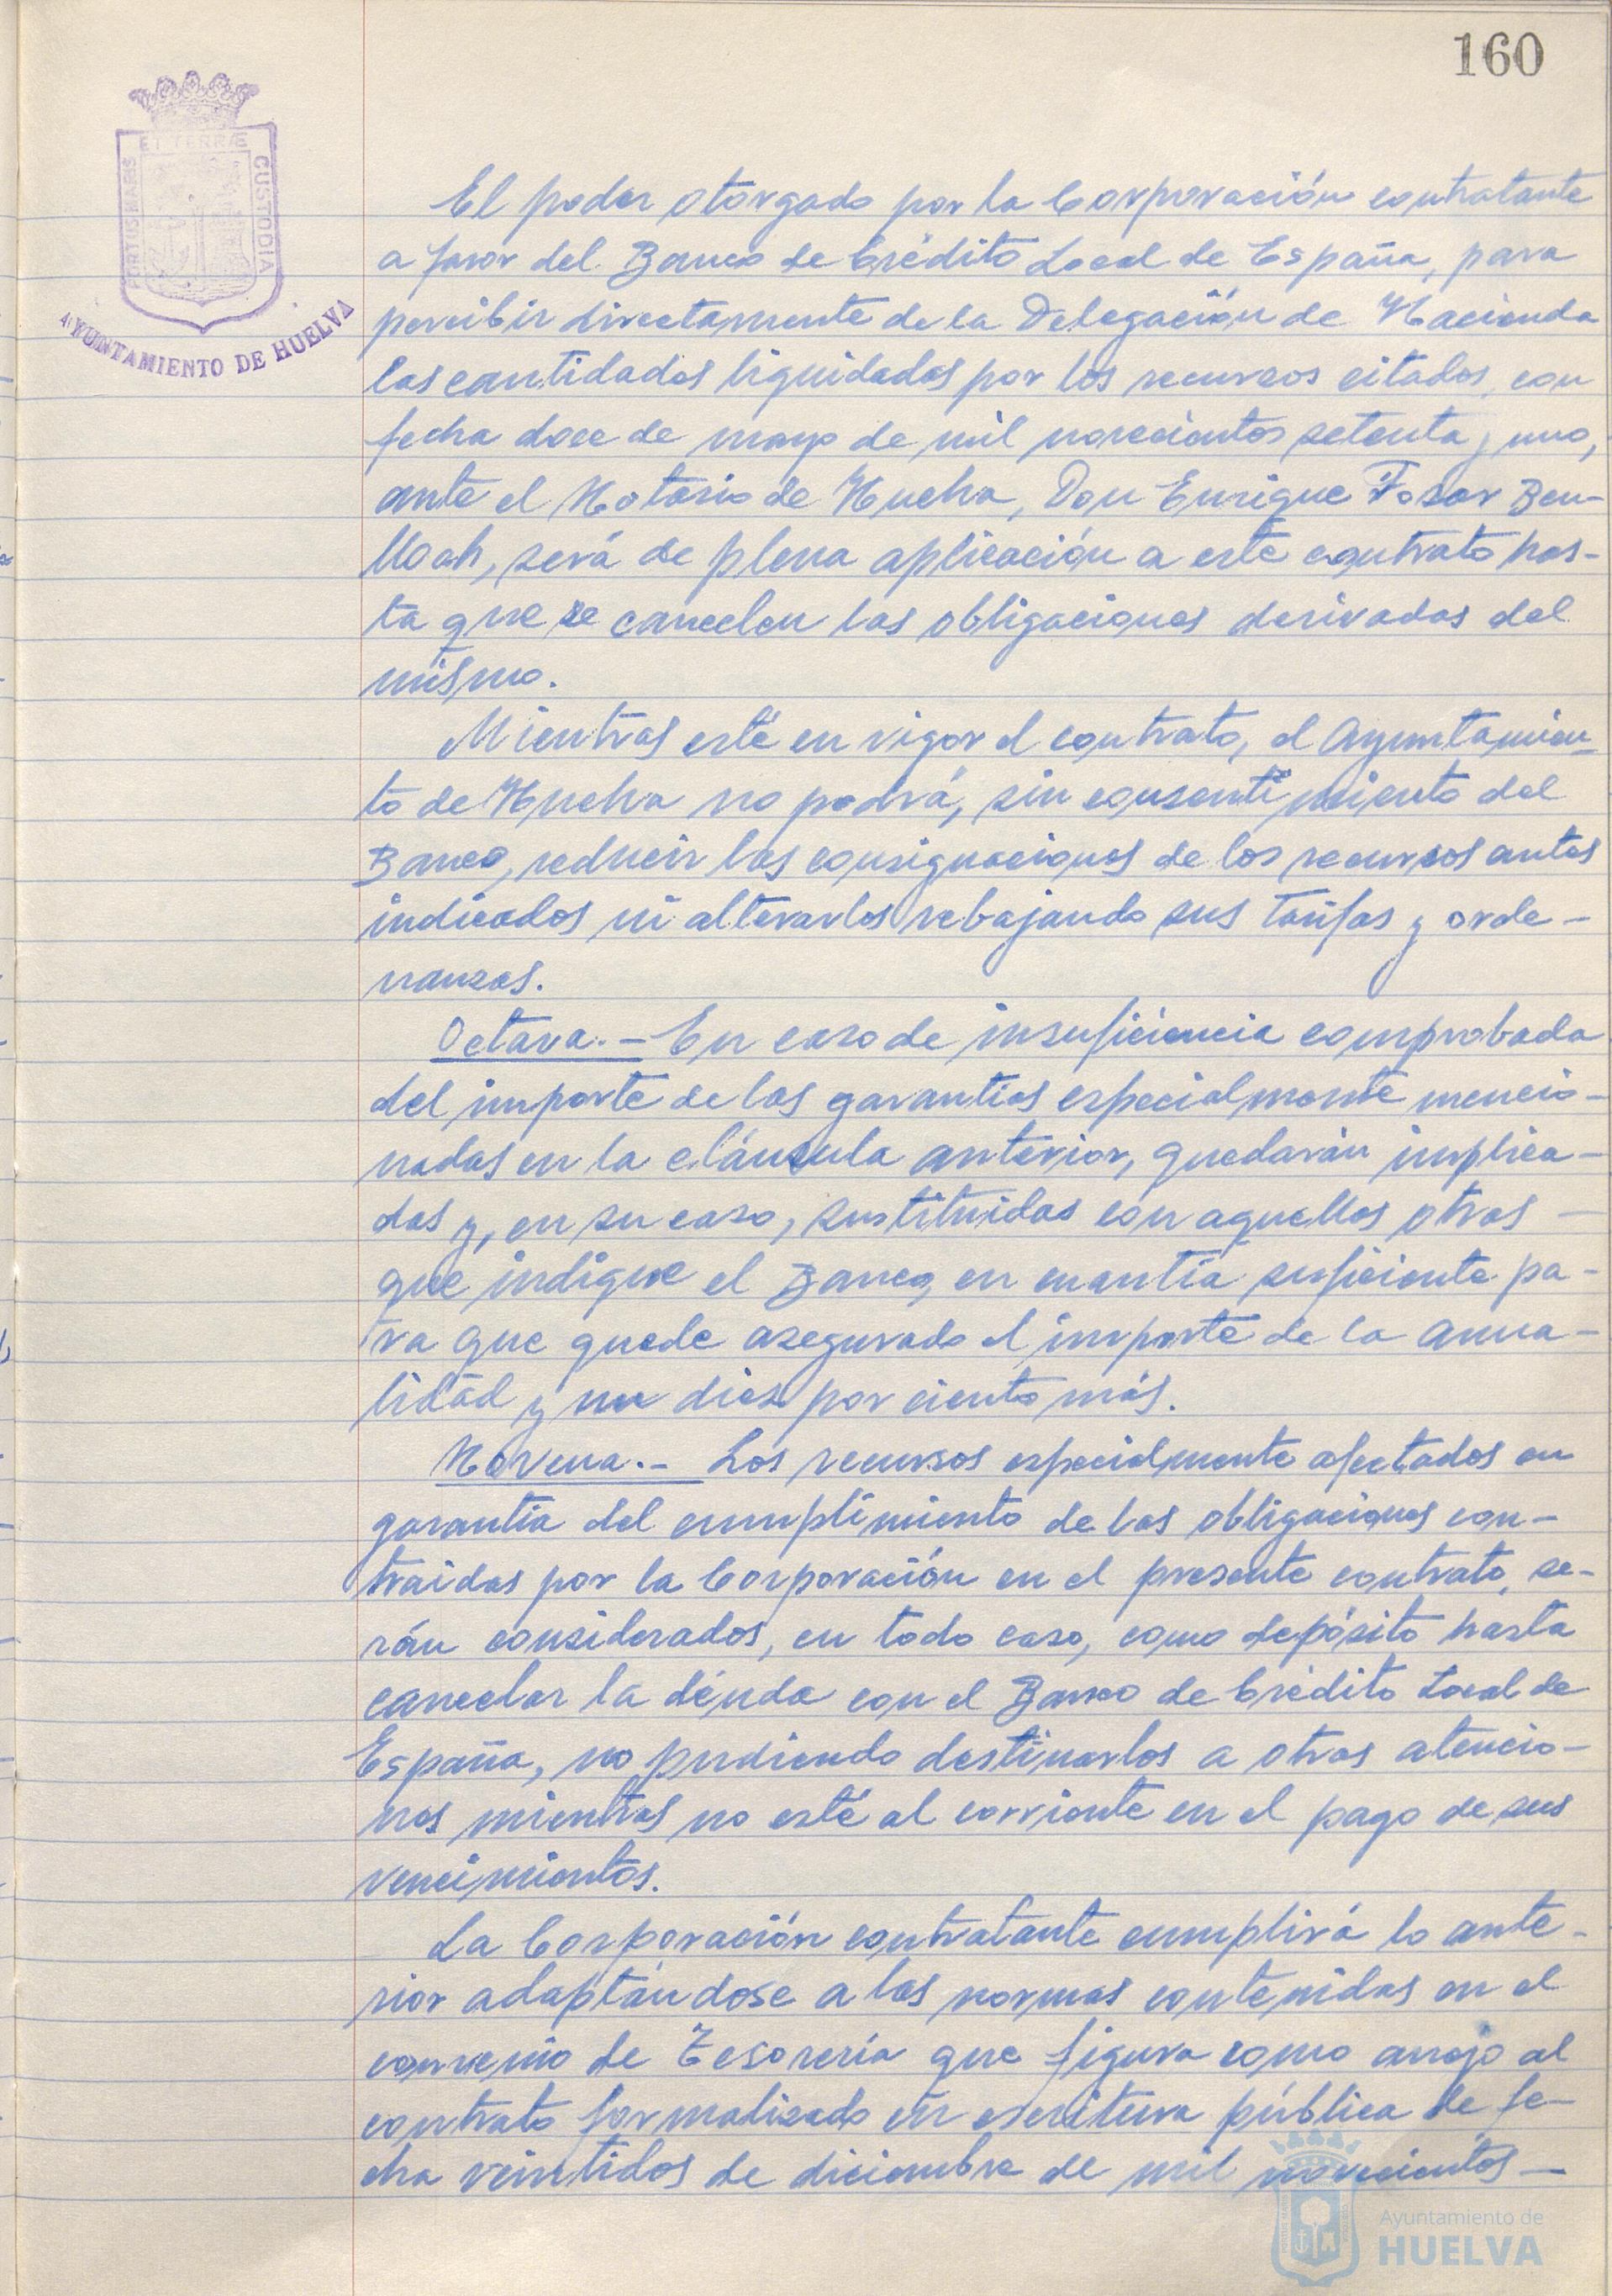 160
ET TERRÆ
PORTUS MARIS
CUSTODIA
AYUNTAMIENTO DE HUELVA
El poder otorgado por la Corporación contratante
a favor del Banco de Crédito Local de España, para
percibir directamente de la Delegación de Hacienda
las cantidades liquidadas por los recursos citados, con
fecha doce de mayo de mil novecientos setenta y uno,
ante el Notario de Huelva, Don Enrique Fosar Ben-
lloch, será de plena aplicación a este contrato has-
ta que se cancelen las obligaciones derivadas del
mismo.
Mientras esté en vigor el contrato, el Ayuntamien-
to de Huelva no podrá, sin consentimiento del
Banco, reducir las consignaciones de los recursos antes
indicados ni alterarlos rebajando sus tarifas y orde-
nanzas.
Octava.- En caso de insuficiencia comprobada
del importe de las garantías especialmente mencio-
nadas en la cláusula anterior, quedarán implica-
das y, en su caso, sustituidas con aquellas otras -
que indique el Banco, en cuantía suficiente pa-
ra que quede asegurado el importe de la anua-
lidad y un diez por ciento más.
Novena.- Los recursos especialmente afectados en
garantía del cumplimiento de las obligaciones con-
traidas por la Corporación en el presente contrato, se-
rán considerados, en todo caso, como depósito hasta
cancelar la deuda con el Banco de Crédito Local de
España, no pudiendo destinarlos a otras atencio-
nes mientras no esté al corriente en el pago de sus
vencimientos.
La Corporación contratante cumplirá lo ante-
rior adaptándose a las normas contenidas en el
convenio de Tesorería que figura como anejo al
contrato formalizado en escritura pública de fe-
cha veintidos de diciembre de mil novecientos -
Ayuntamiento de
HUELVA